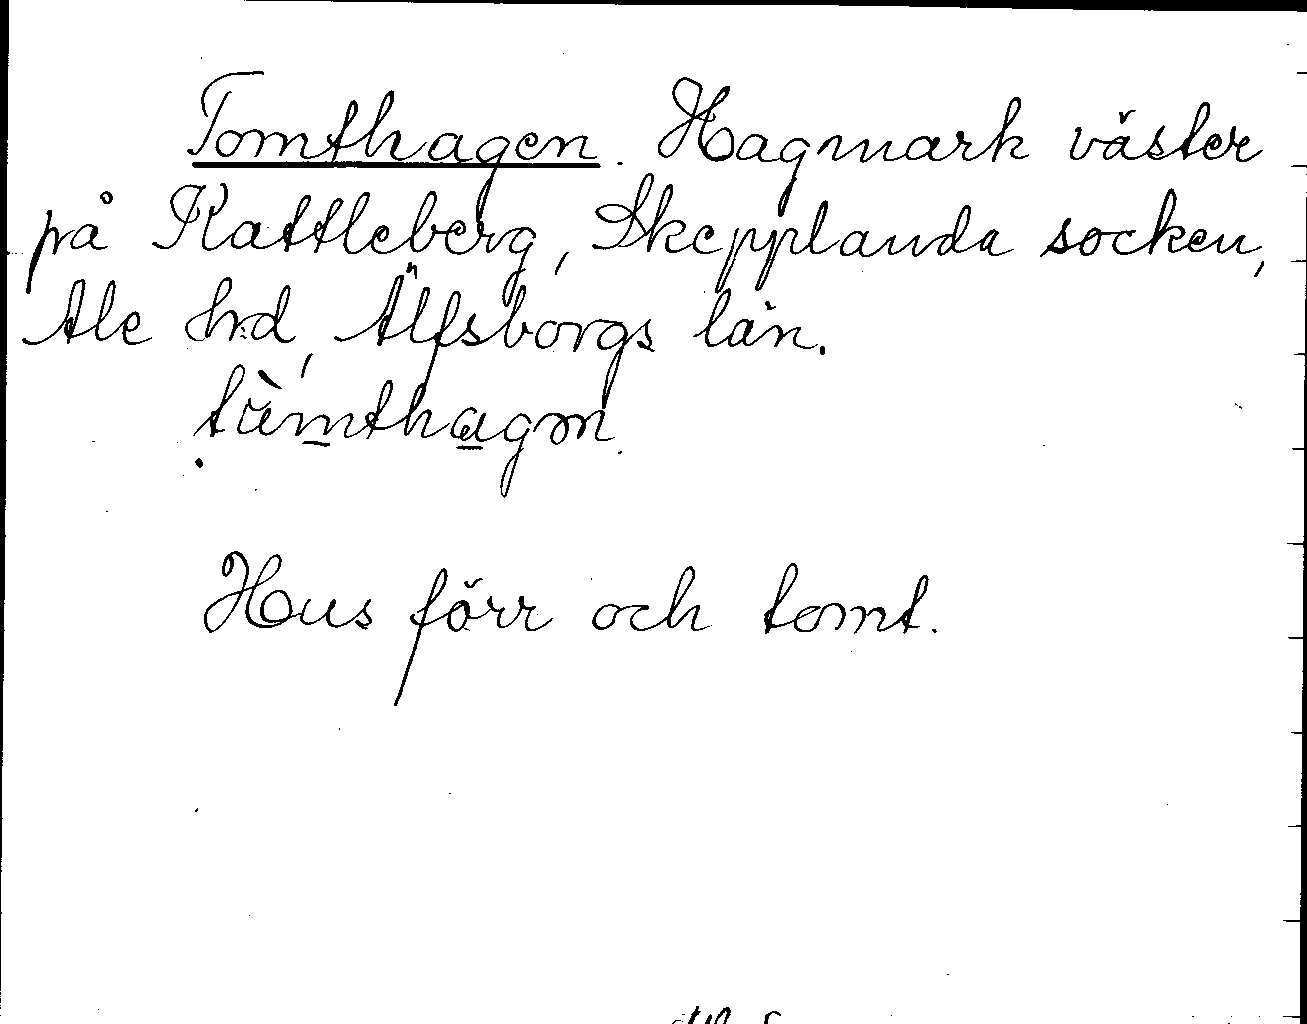 Tomthagen. Hagmark väster
på Kattleberg, Skepplanda socken,
Ale hd, Älfsborgs län.
Hus förr och tomt.